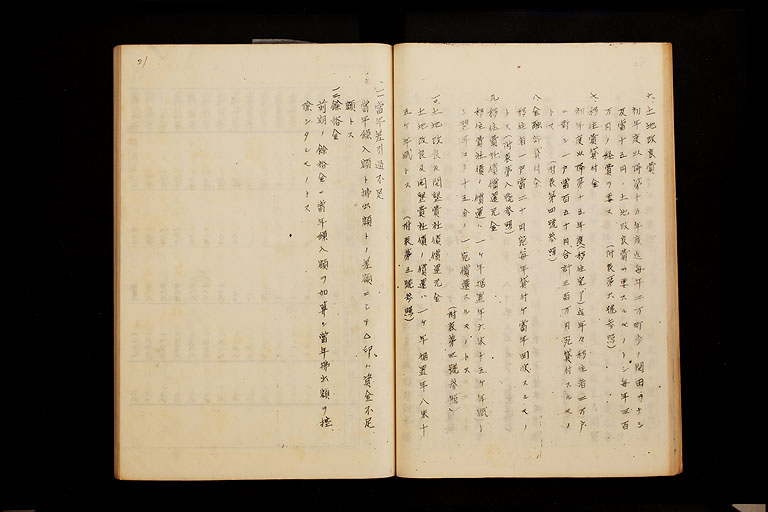 六、土地改良費
初年度以降第十五年度迄毎年二万町歩ノ開田ヲナシ
反当十五円ノ土地改良費ヲ要スルモノトシ毎年三百
万円ノ経費ヲ要ス (附表第六號参照)
七、移住費貸付金
初年度以降第十五年度(移住完了)迄年々移住者二万戸
ニ対シ一戸当百五十円合計三百万円宛貸付スルモノ
トス (附表第四號参照)
八、金融部貸付金
移住者一戸当二十円宛毎年貸付ケ当年回収スルモノ
トス(附表第八號参照)
九、移住費社債償還元金
移住費社債ノ償還ハ一ケ年据置年六朱十五ケ年賦ノ
翌年ヨリ十五分ノ一宛償還スルモノトス
(附表第四號参照)
一〇、土地改良及開墾費社債償還元金
土地改良及開墾費社債ノ償還ハ一ケ年据置年八朱十
五ケ年賦トス (附表第五號参照)
21
一一、当年差引過不足
当年繰入額ト拂出額トノ差額ニシテ△印ハ資金不足
額トス
一二、餘裕金
前期ノ餘裕金ニ当年繰入額ヲ加算シ当年拂出額ヲ控
除シタルモノトス